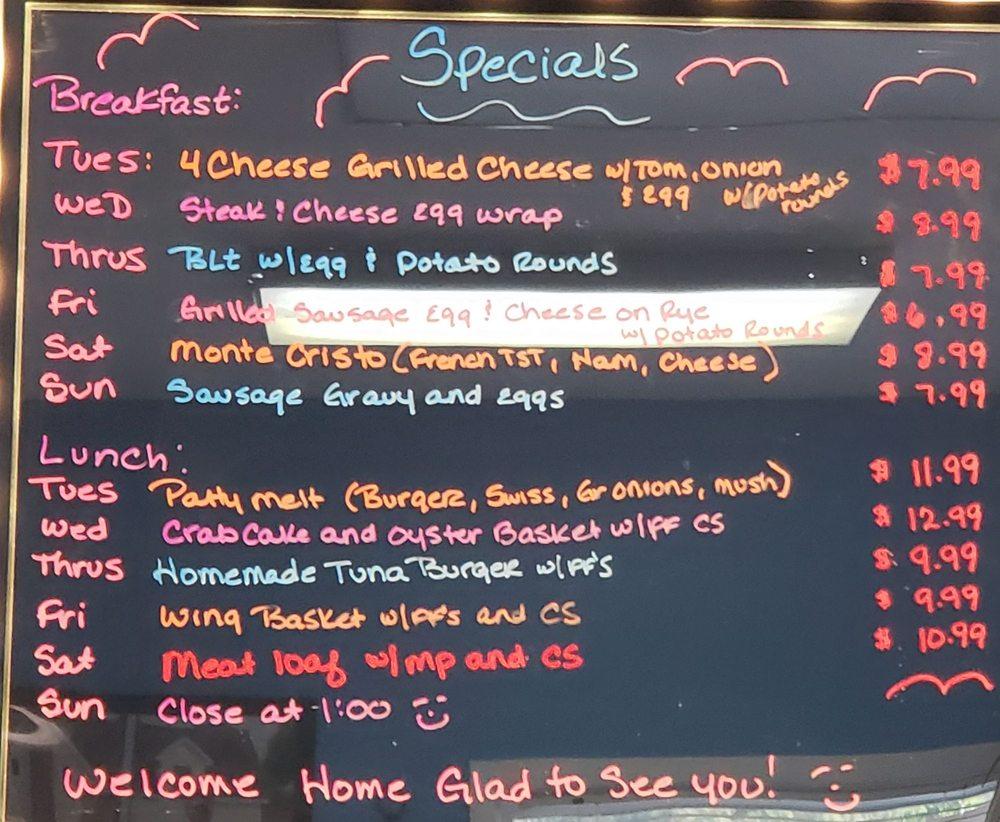 Specials
Breakfast:
Tues: 4 Cheese Grilled Cheese w/Tom, onion $7.99
& egg w/Potato rounds
WED Steak & Cheese egg wrap $8.99
Thrus BLt w/Egg & Potato Rounds $7.99
Fri Grilled Sausage Egg & Cheese on Rye $6.99
w/Potato Rounds
Sat Monte Cristo (French TST, Ham, Cheese) $8.99
Sun Sausage Gravy and Eggs $7.99
Lunch:
Tues Patty melt (Burger, Swiss, Gr onions, mush) $11.99
Wed Crab Cake and oyster Basket w/FF CS $12.99
Thrus Homemade Tuna Burger w/FF's $9.99
Fri Wing Basket w/FF's and CS $9.99
Sat Meat loaf w/mp and CS $10.99
Sun Close at 1:00
Welcome Home Glad to See you!